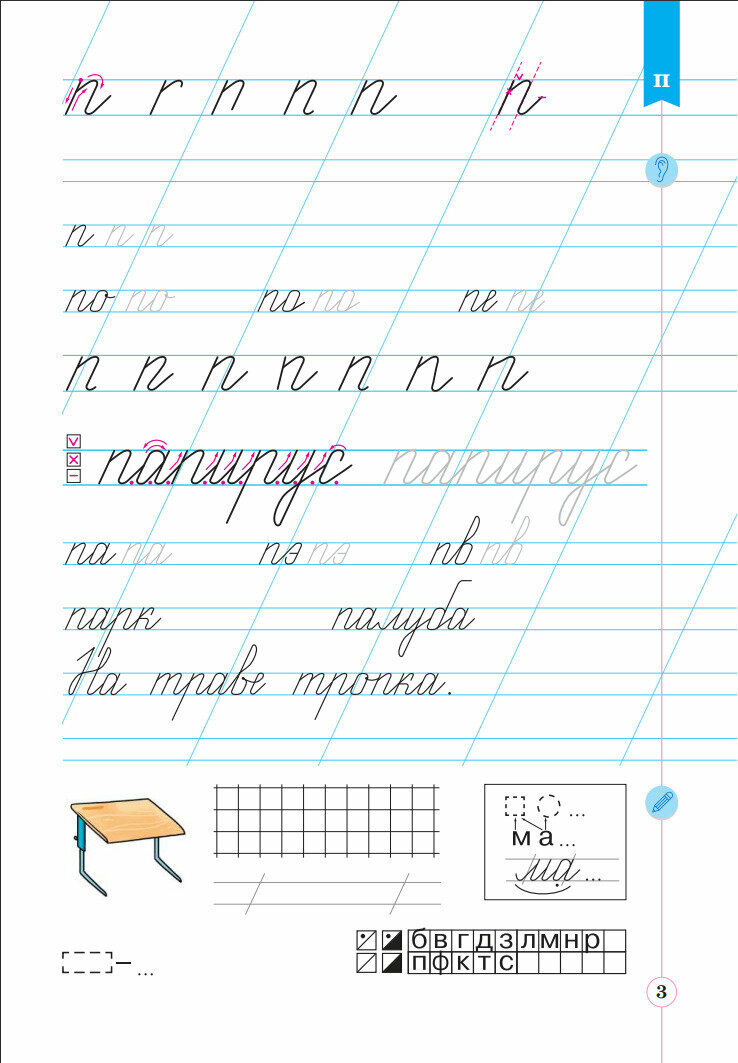 п г п п п п
П
п п п
по по по по пе пе
п п п п п п п
папирус папирус
па па пэ пэ пв пв
парк палуба
На траве тропка.
...
м а ...
ма ...
б в г д з л м н р
– ... п ф к т с
3